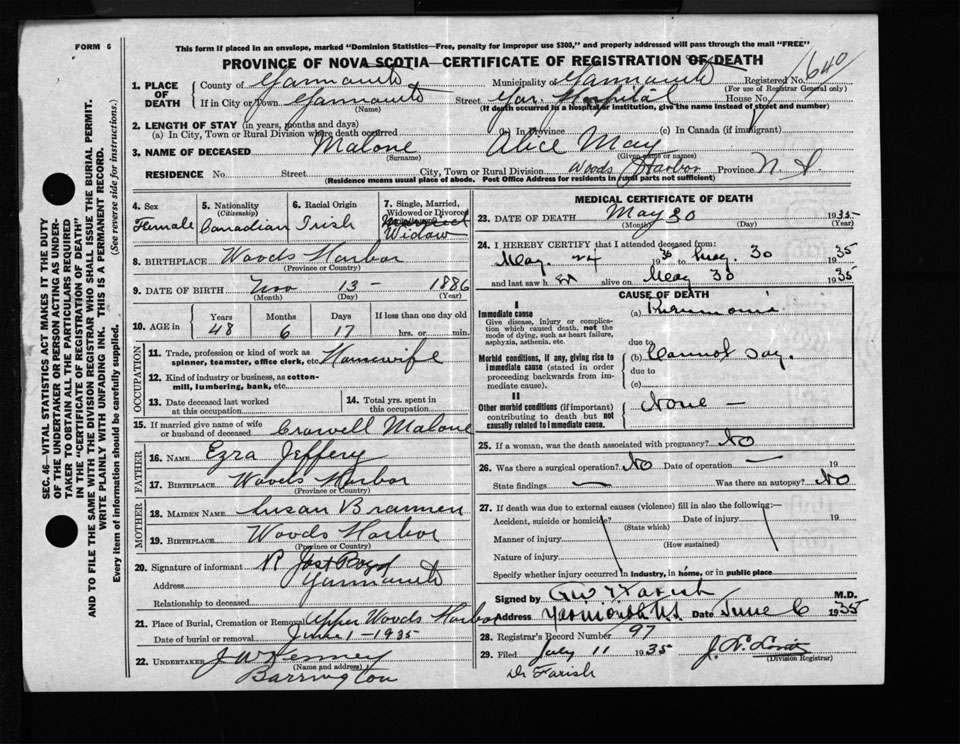 FORM 6
This form if placed in an envelope, marked "Dominion Statistics—Free, penalty for improper use $300," and properly addressed will pass through the mail "FREE"
PROVINCE OF NOVA SCOTIA—CERTIFICATE OF REGISTRATION OF DEATH
1. PLACE OF DEATH
County of Yarmouth Municipality of Yarmouth Registered No. 640
(For use of Registrar General only)
If in City or Town Yarmouth Street Yar. Hospital House No.
(Name) (If death occurred in a hospital or institution, give the name instead of street and number)
2. LENGTH OF STAY (in years, months and days)
(a) In City, Town or Rural Division where death occurred (b) In Province (c) In Canada (if immigrant)
3. NAME OF DECEASED Malone Alice May
(Surname) (Given name or names)
RESIDENCE No Street City, Town or Rural Division Woods Harbor Province N.S.
(Residence means usual place of abode. Post Office Address for residents in rural parts not sufficient)
4. Sex Female
5. Nationality (Citizenship) Canadian
6. Racial Origin Irish
7. Single, Married, Widowed or Divorced
Widow
8. BIRTHPLACE Woods Harbor
(Province or Country)
9. DATE OF BIRTH Nov 13 - 1886
(Month) (Day) (Year)
10. AGE in Years Months Days If less than one day old
48 6 17 hrs. or min.
OCCUPATION
11. Trade, profession or kind of work as spinner, teamster, office clerk, etc. Housewife
12. Kind of industry or business, as cotton-mill, lumbering, bank, etc.
13. Date deceased last worked at this occupation
14. Total yrs. spent in this occupation
15. If married give name of wife or husband of deceased Crowell Malone
FATHER
16. NAME Ezra Jeffery
17. BIRTHPLACE Woods Harbor
(Province or Country)
MOTHER
18. MAIDEN NAME Susan Brannen
19. BIRTHPLACE Woods Harbor
(Province or Country)
20. Signature of informant
Address Yarmouth
Relationship to deceased
21. Place of Burial, Cremation or Removal Upper Woods Harbor
Date of burial or removal June 1 - 1935
22. UNDERTAKER J W Kenney
(Name and address)
Barrington
MEDICAL CERTIFICATE OF DEATH
23. DATE OF DEATH May 30 1935
(Month) (Day) (Year)
24. I HEREBY CERTIFY that I attended deceased from:
May. 24 1935 to May. 30 1935
and last saw h er alive on May 30 1935
CAUSE OF DEATH
I
Immediate cause
Give disease, injury or complication which caused death, not the mode of dying, such as heart failure, asphyxia, asthenia, etc.
(a) Pneumonia
due to
Morbid conditions, if any, giving rise to immediate cause (stated in order proceeding backwards from immediate cause).
(b) Cannot say.
due to
(c)
II
Other morbid conditions (if important) contributing to death but not causally related to immediate cause.
None —
25. If a woman, was the death associated with pregnancy? No
26. Was there a surgical operation? No Date of operation — 19
State findings — Was there an autopsy? No
27. If death was due to external causes (violence) fill in also the following:—
Accident, suicide or homicide? Date of injury 19
(State which)
Manner of injury
(How sustained)
Nature of injury
Specify whether injury occurred in industry, in home, or in public place
Signed by G W T Farish M.D.
Address Yarmouth N.S. Date June 6 1935
28. Registrar's Record Number 97
29. Filed July 11 1935
(Division Registrar)
Dr Farish
SEC. 46—VITAL STATISTICS ACT MAKES IT THE DUTY
OF THE UNDERTAKER OR PERSON ACTING AS UNDER-
TAKER TO OBTAIN ALL THE PARTICULARS REQUIRED
IN THE "CERTIFICATE OF REGISTRATION OF DEATH"
AND TO FILE THE SAME WITH THE DIVISION REGISTRAR WHO SHALL ISSUE THE BURIAL PERMIT.
WRITE PLAINLY WITH UNFADING INK. THIS IS A PERMANENT RECORD.
Every item of information should be carefully supplied. (See reverse side for instructions.)